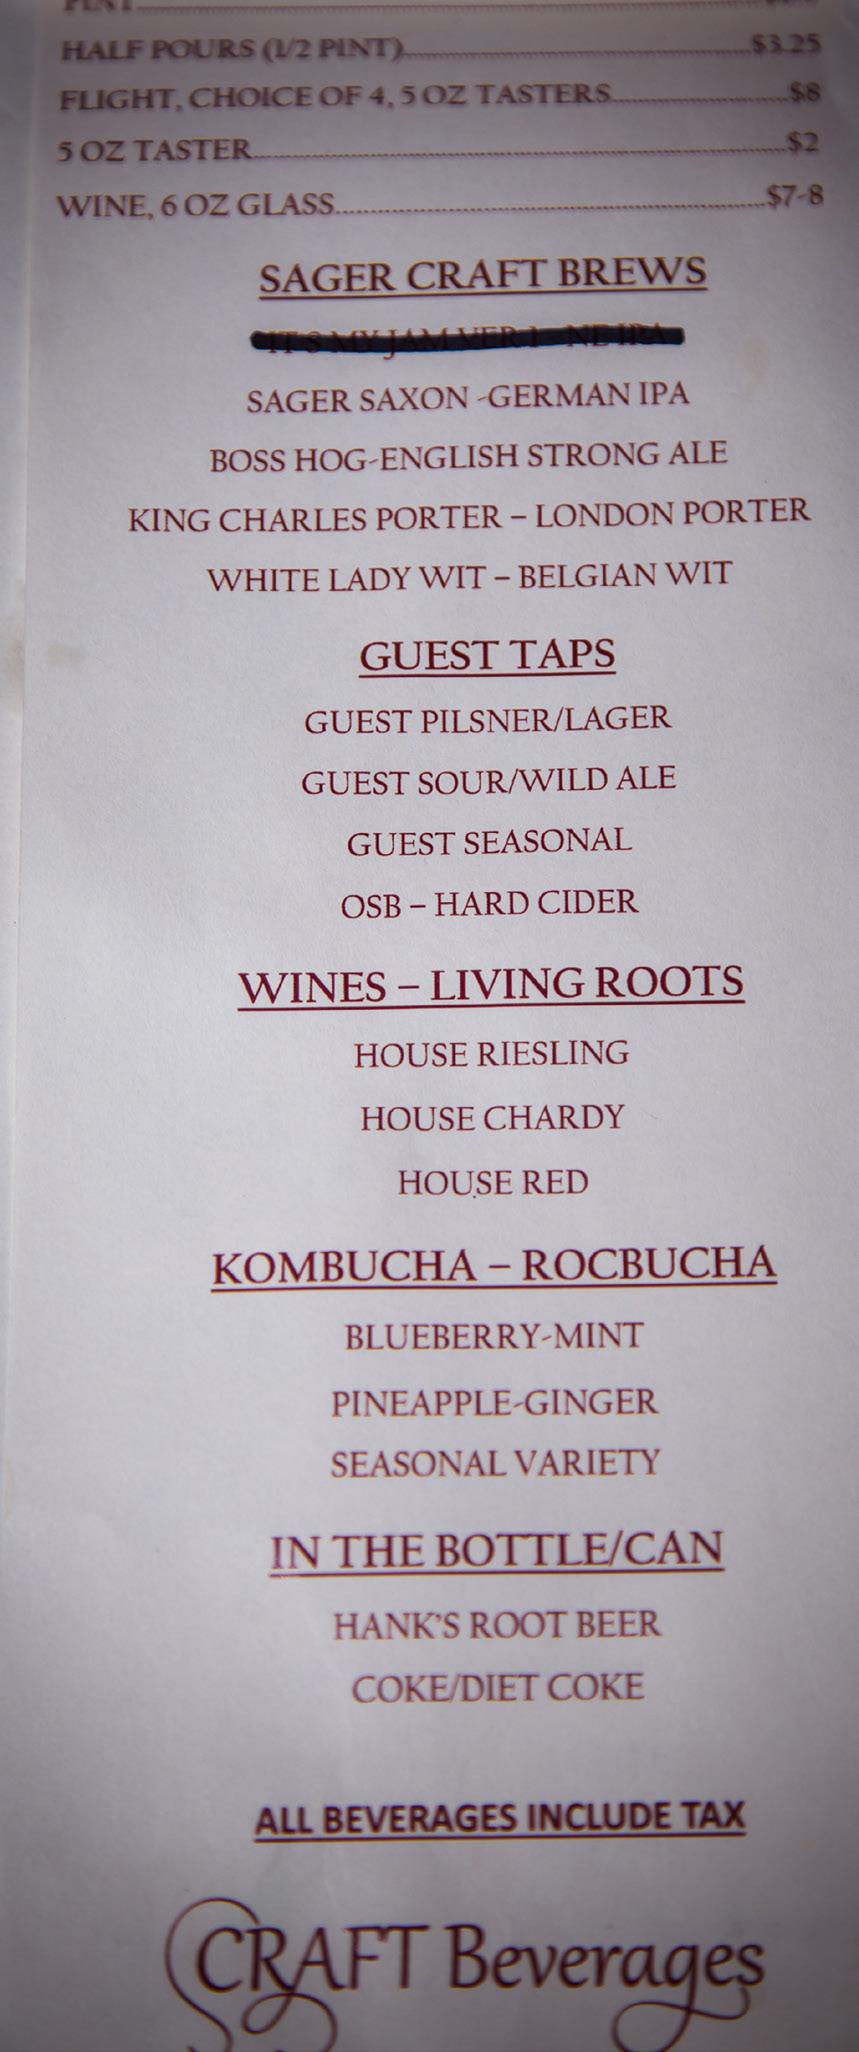 PINT
HALF POURS (1/2 PINT)........$3.25
FLIGHT, CHOICE OF 4, 5 OZ TASTERS........$8
5 OZ TASTER........$2
WINE, 6 OZ GLASS........$7-8
SAGER CRAFT BREWS
IT'S MY JAM VER 1 - NE IPA
SAGER SAXON -GERMAN IPA
BOSS HOG-ENGLISH STRONG ALE
KING CHARLES PORTER – LONDON PORTER
WHITE LADY WIT – BELGIAN WIT
GUEST TAPS
GUEST PILSNER/LAGER
GUEST SOUR/WILD ALE
GUEST SEASONAL
OSB – HARD CIDER
WINES – LIVING ROOTS
HOUSE RIESLING
HOUSE CHARDY
HOUSE RED
KOMBUCHA – ROCBUCHA
BLUEBERRY-MINT
PINEAPPLE-GINGER
SEASONAL VARIETY
IN THE BOTTLE/CAN
HANK'S ROOT BEER
COKE/DIET COKE
ALL BEVERAGES INCLUDE TAX
CRAFT Beverages